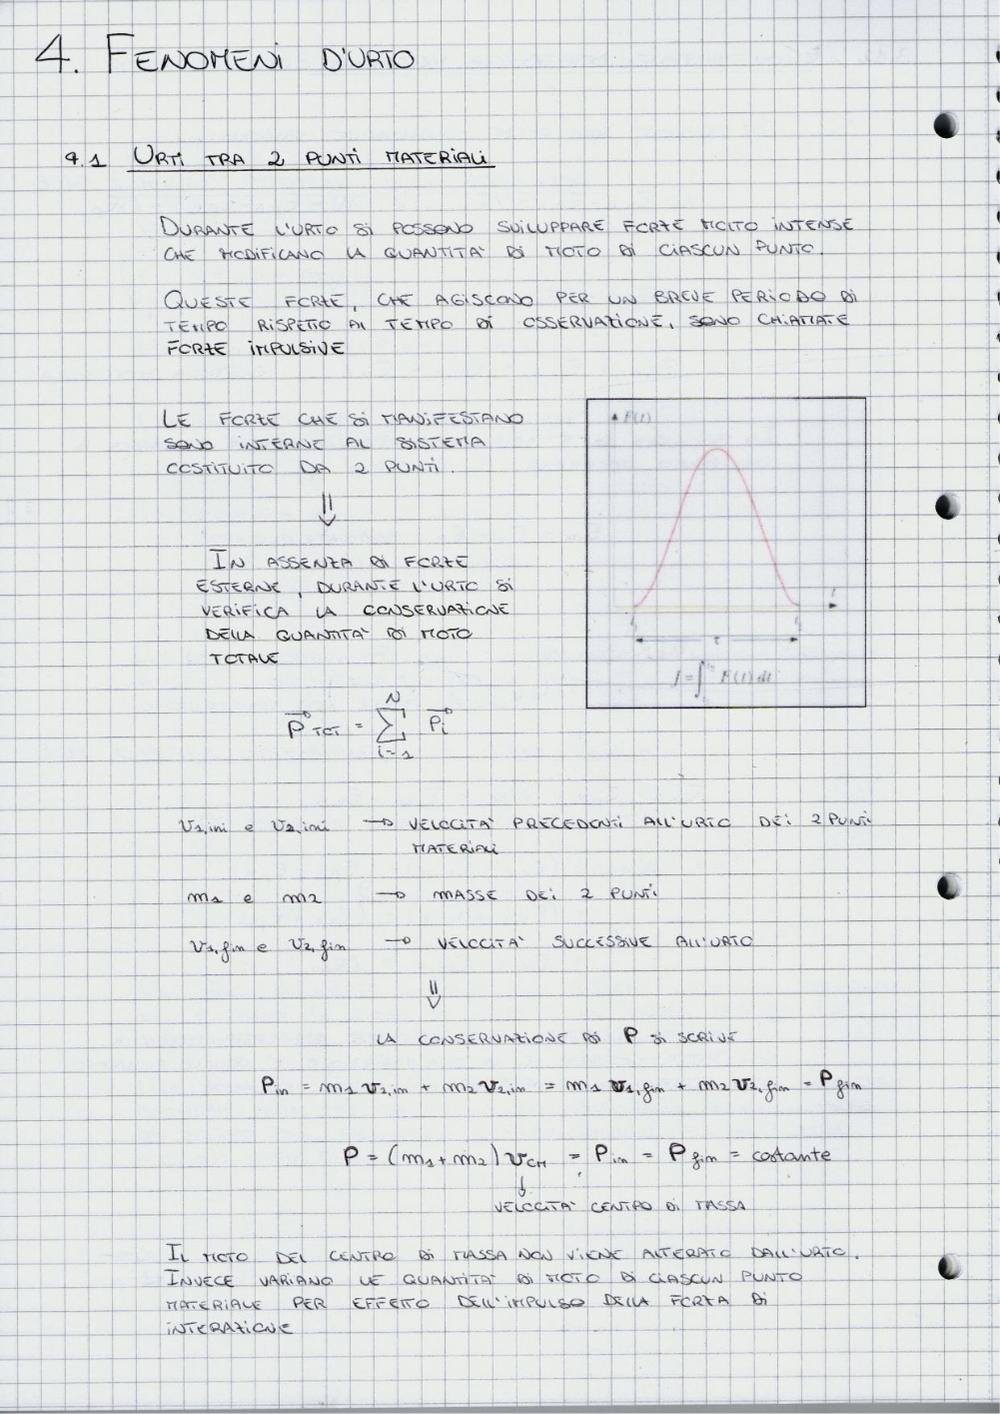 4. FENOMENI D'URTO
4.1 URTI TRA 2 PUNTI MATERIALI
DURANTE L'URTO SI POSSONO SVILUPPARE FORZE MOLTO INTENSE
CHE MODIFICANO LA QUANTITA' DI MOTO DI CIASCUN PUNTO.
QUESTE FORZE, CHE AGISCONO PER UN BREVE PERIODO DI
TEMPO RISPETTO AL TEMPO DI OSSERVAZIONE, SONO CHIAMATE
FORZE IMPULSIVE
LE FORZE CHE SI MANIFESTANO
SONO INTERNE AL SISTEMA
COSTITUITO DA 2 PUNTI.
⇓
IN ASSENZA DI FORZE
ESTERNE, DURANTE L'URTO SI
VERIFICA LA CONSERVAZIONE
DELLA QUANTITA' DI MOTO
TOTALE
P⃗ TOT = ∑ᵢ₌₁ᴺ P⃗i
F(t)
t
τ
J = ∫ F(t) dt
v1,ini e v2,ini → VELOCITA' PRECEDENTI ALL'URTO DEI 2 PUNTI
MATERIALI
m1 e m2 → MASSE DEI 2 PUNTI
v1,fin e v2,fin → VELOCITA' SUCCESSIVE ALL'URTO
⇓
LA CONSERVAZIONE DI P SI SCRIVE
Pin = m1 v1,in + m2 v2,in = m1 v1,fin + m2 v2,fin = P fin
P = (m1 + m2) vCM = Pin = P fin = costante
↓
VELOCITA' CENTRO DI MASSA
IL MOTO DEL CENTRO DI MASSA NON VIENE ALTERATO DALL'URTO.
INVECE VARIANO LE QUANTITA' DI MOTO DI CIASCUN PUNTO
MATERIALE PER EFFETTO DELL'IMPULSO DELLA FORZA DI
INTERAZIONE